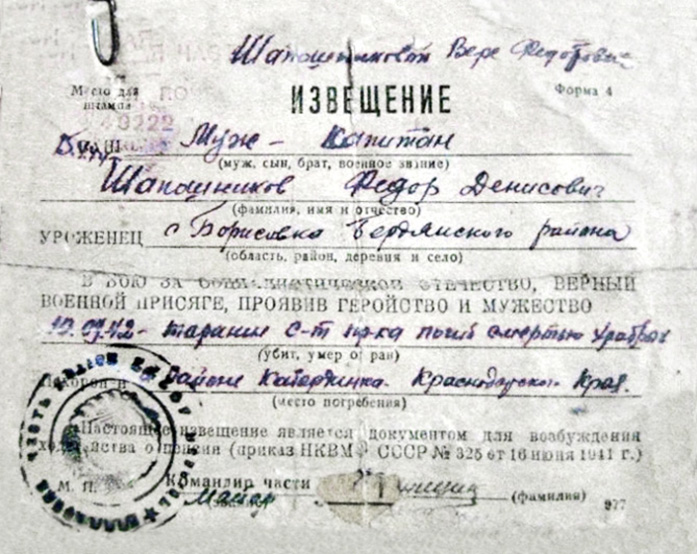 Шапошниковой Вере Федоровне
ИЗВЕЩЕНИЕ
Форма 4
Место для
штампа
9222
Ваш Муж - Капитан
(муж, сын, брат, военное звание)
Шапошников Федор Денисович
(фамилия, имя и отчество)
УРОЖЕНЕЦ с Борисовка Бердянского района
(область, район, деревня и село)
В БОЮ ЗА СОЦИАЛИСТИЧЕСКОЕ ОТЕЧЕСТВО, ВЕРНЫЙ
ВОЕННОЙ ПРИСЯГЕ, ПРОЯВИВ ГЕРОЙСТВО И МУЖЕСТВО
таранив с-т пр-ка погиб смертью храбрых
(убит, умер от ран)
Похоронен в районе Краснодарского Края.
(место погребения)
Настоящее извещение является документом для возбуждения
ходатайства о пенсии (приказ НКВМФ СССР № 325 от 16 июня 1941 г.)
М. П.
Командир части
Майор
(фамилия)